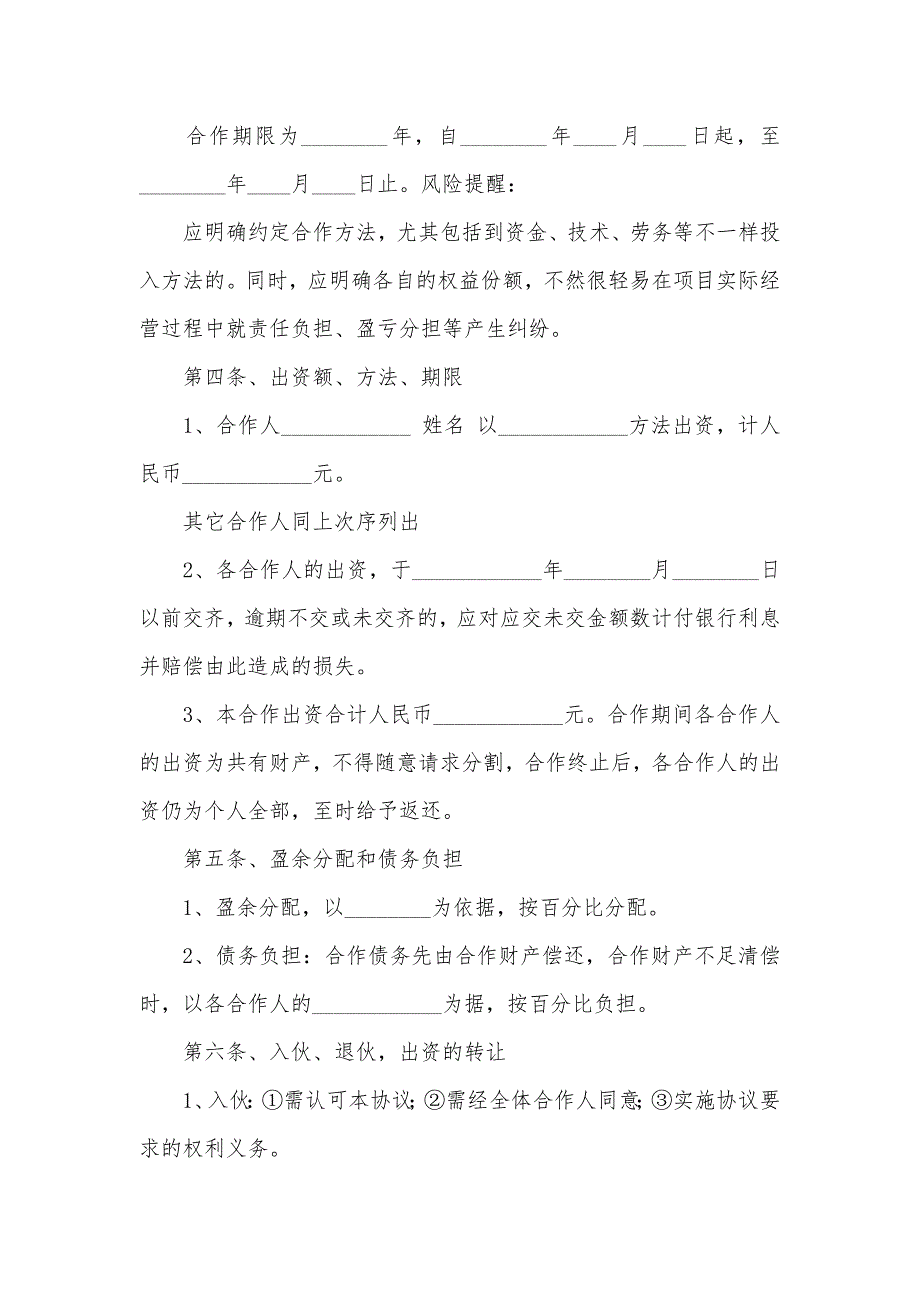 合作期限为________年，自________年____月____日起，至
________年____月____日止。风险提醒：
应明确约定合作方法，尤其包括到资金、技术、劳务等不一样投
入方法的。同时，应明确各自的权益份额，不然很轻易在项目实际经
营过程中就责任负担、盈亏分担等产生纠纷。
第四条、出资额、方法、期限
1、合作人____________ 姓名 以____________方法出资，计人
民币____________元。
其它合作人同上次序列出
2、各合作人的出资，于____________年________月________日
以前交齐，逾期不交或未交齐的，应对应交未交金额数计付银行利息
并赔偿由此造成的损失。
3、本合作出资合计人民币____________元。合作期间各合作人
的出资为共有财产，不得随意请求分割，合作终止后，各合作人的出
资仍为个人全部，至时给予返还。
第五条、盈余分配和债务负担
1、盈余分配，以________为依据，按百分比分配。
2、债务负担：合作债务先由合作财产偿还，合作财产不足清偿
时，以各合作人的____________为据，按百分比负担。
第六条、入伙、退伙，出资的转让
1、入伙：①需认可本协议；②需经全体合作人同意；③实施协议要
求的权利义务。